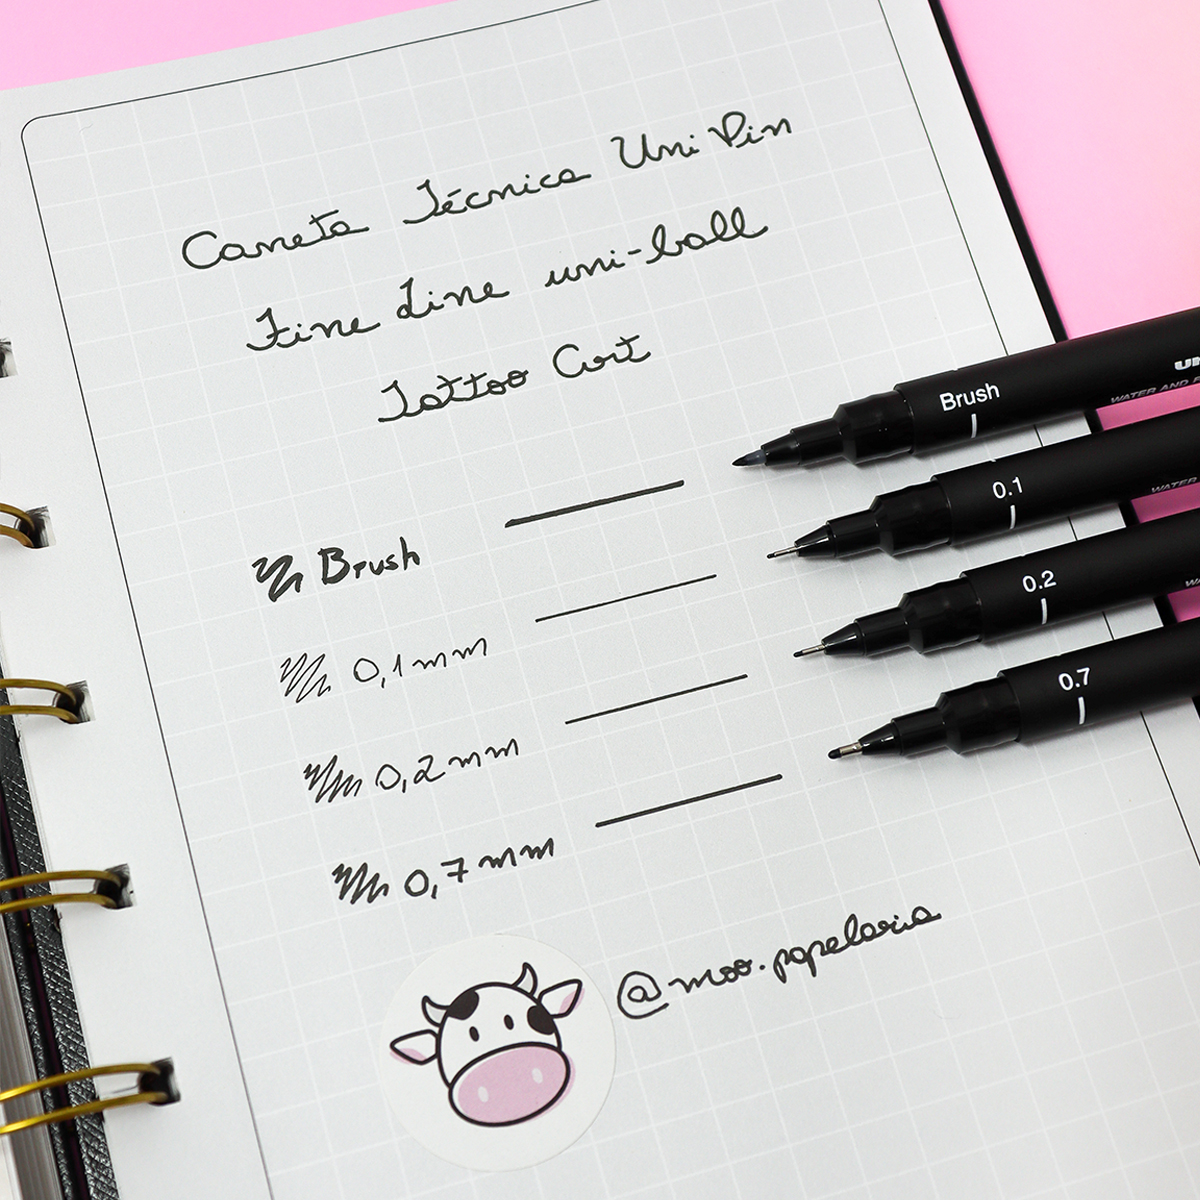 Caneta Técnica Uni Pin
Fine Line uni-ball
Tattoo Art
Brush
0,1mm
0,2mm
0,7mm
@moo.papelaria
Brush
0.1
0.2
0.7
WATER AND
WATER